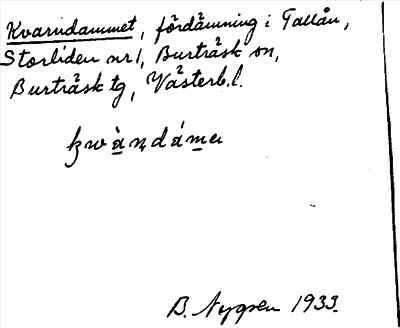 Kvarndammet, fördämning i Tallån,
Storliden nr 1, Burträsk sn,
Burträsk tg, Västerb. l.
B. Nygren 1933.